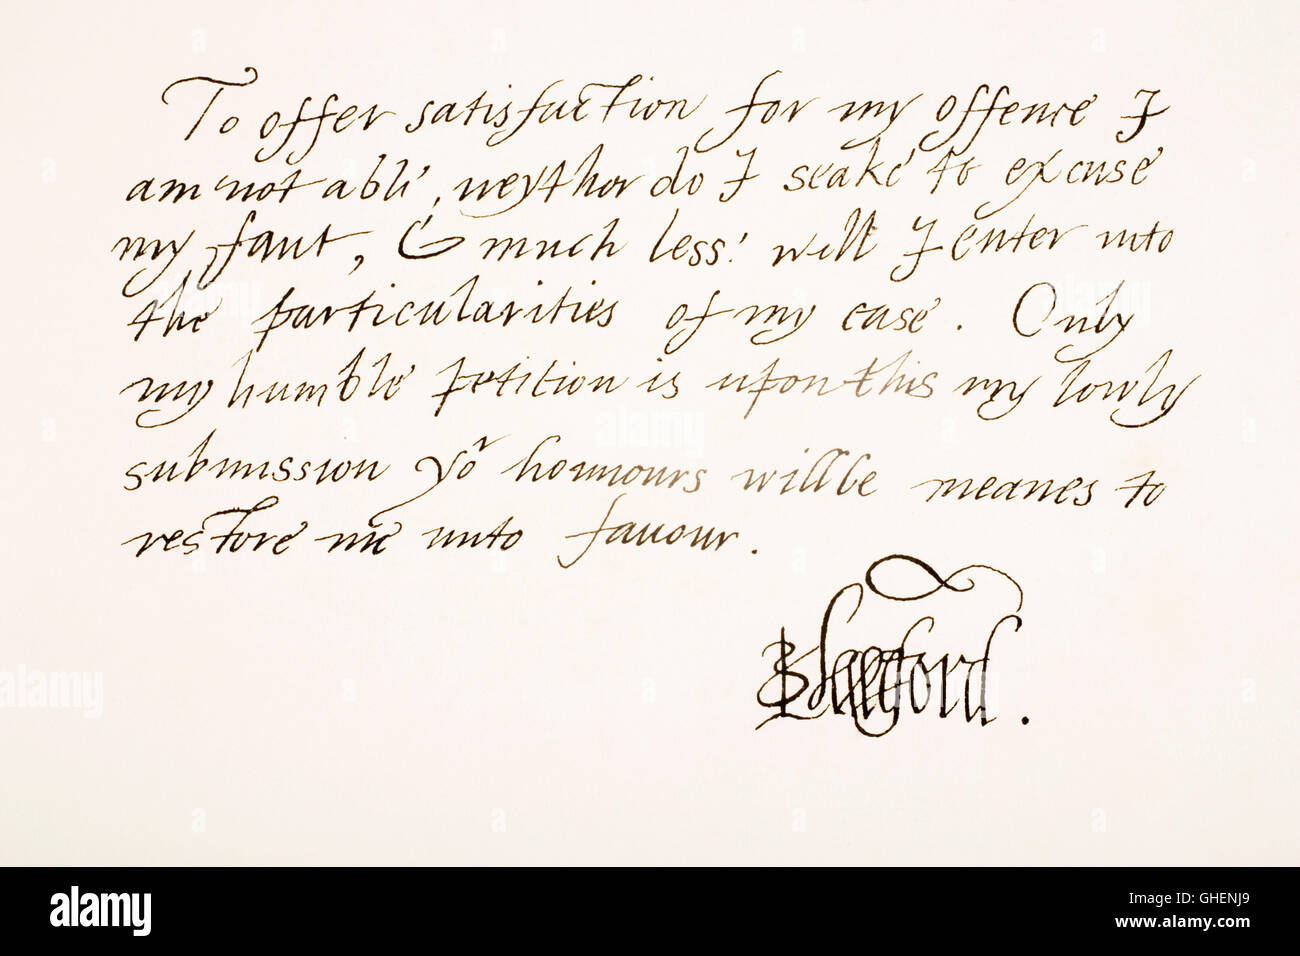 To offer satisfaction for my offence I
am not able, neyther do I seake to excuse
my faut, & much less will I enter into
the particularities of my case. Only
my humble petition is upon this my lowly
submission yor honnours will be meanes to
restore me unto favour.
alamy
Image ID: GHENJ9
www.alamy.com